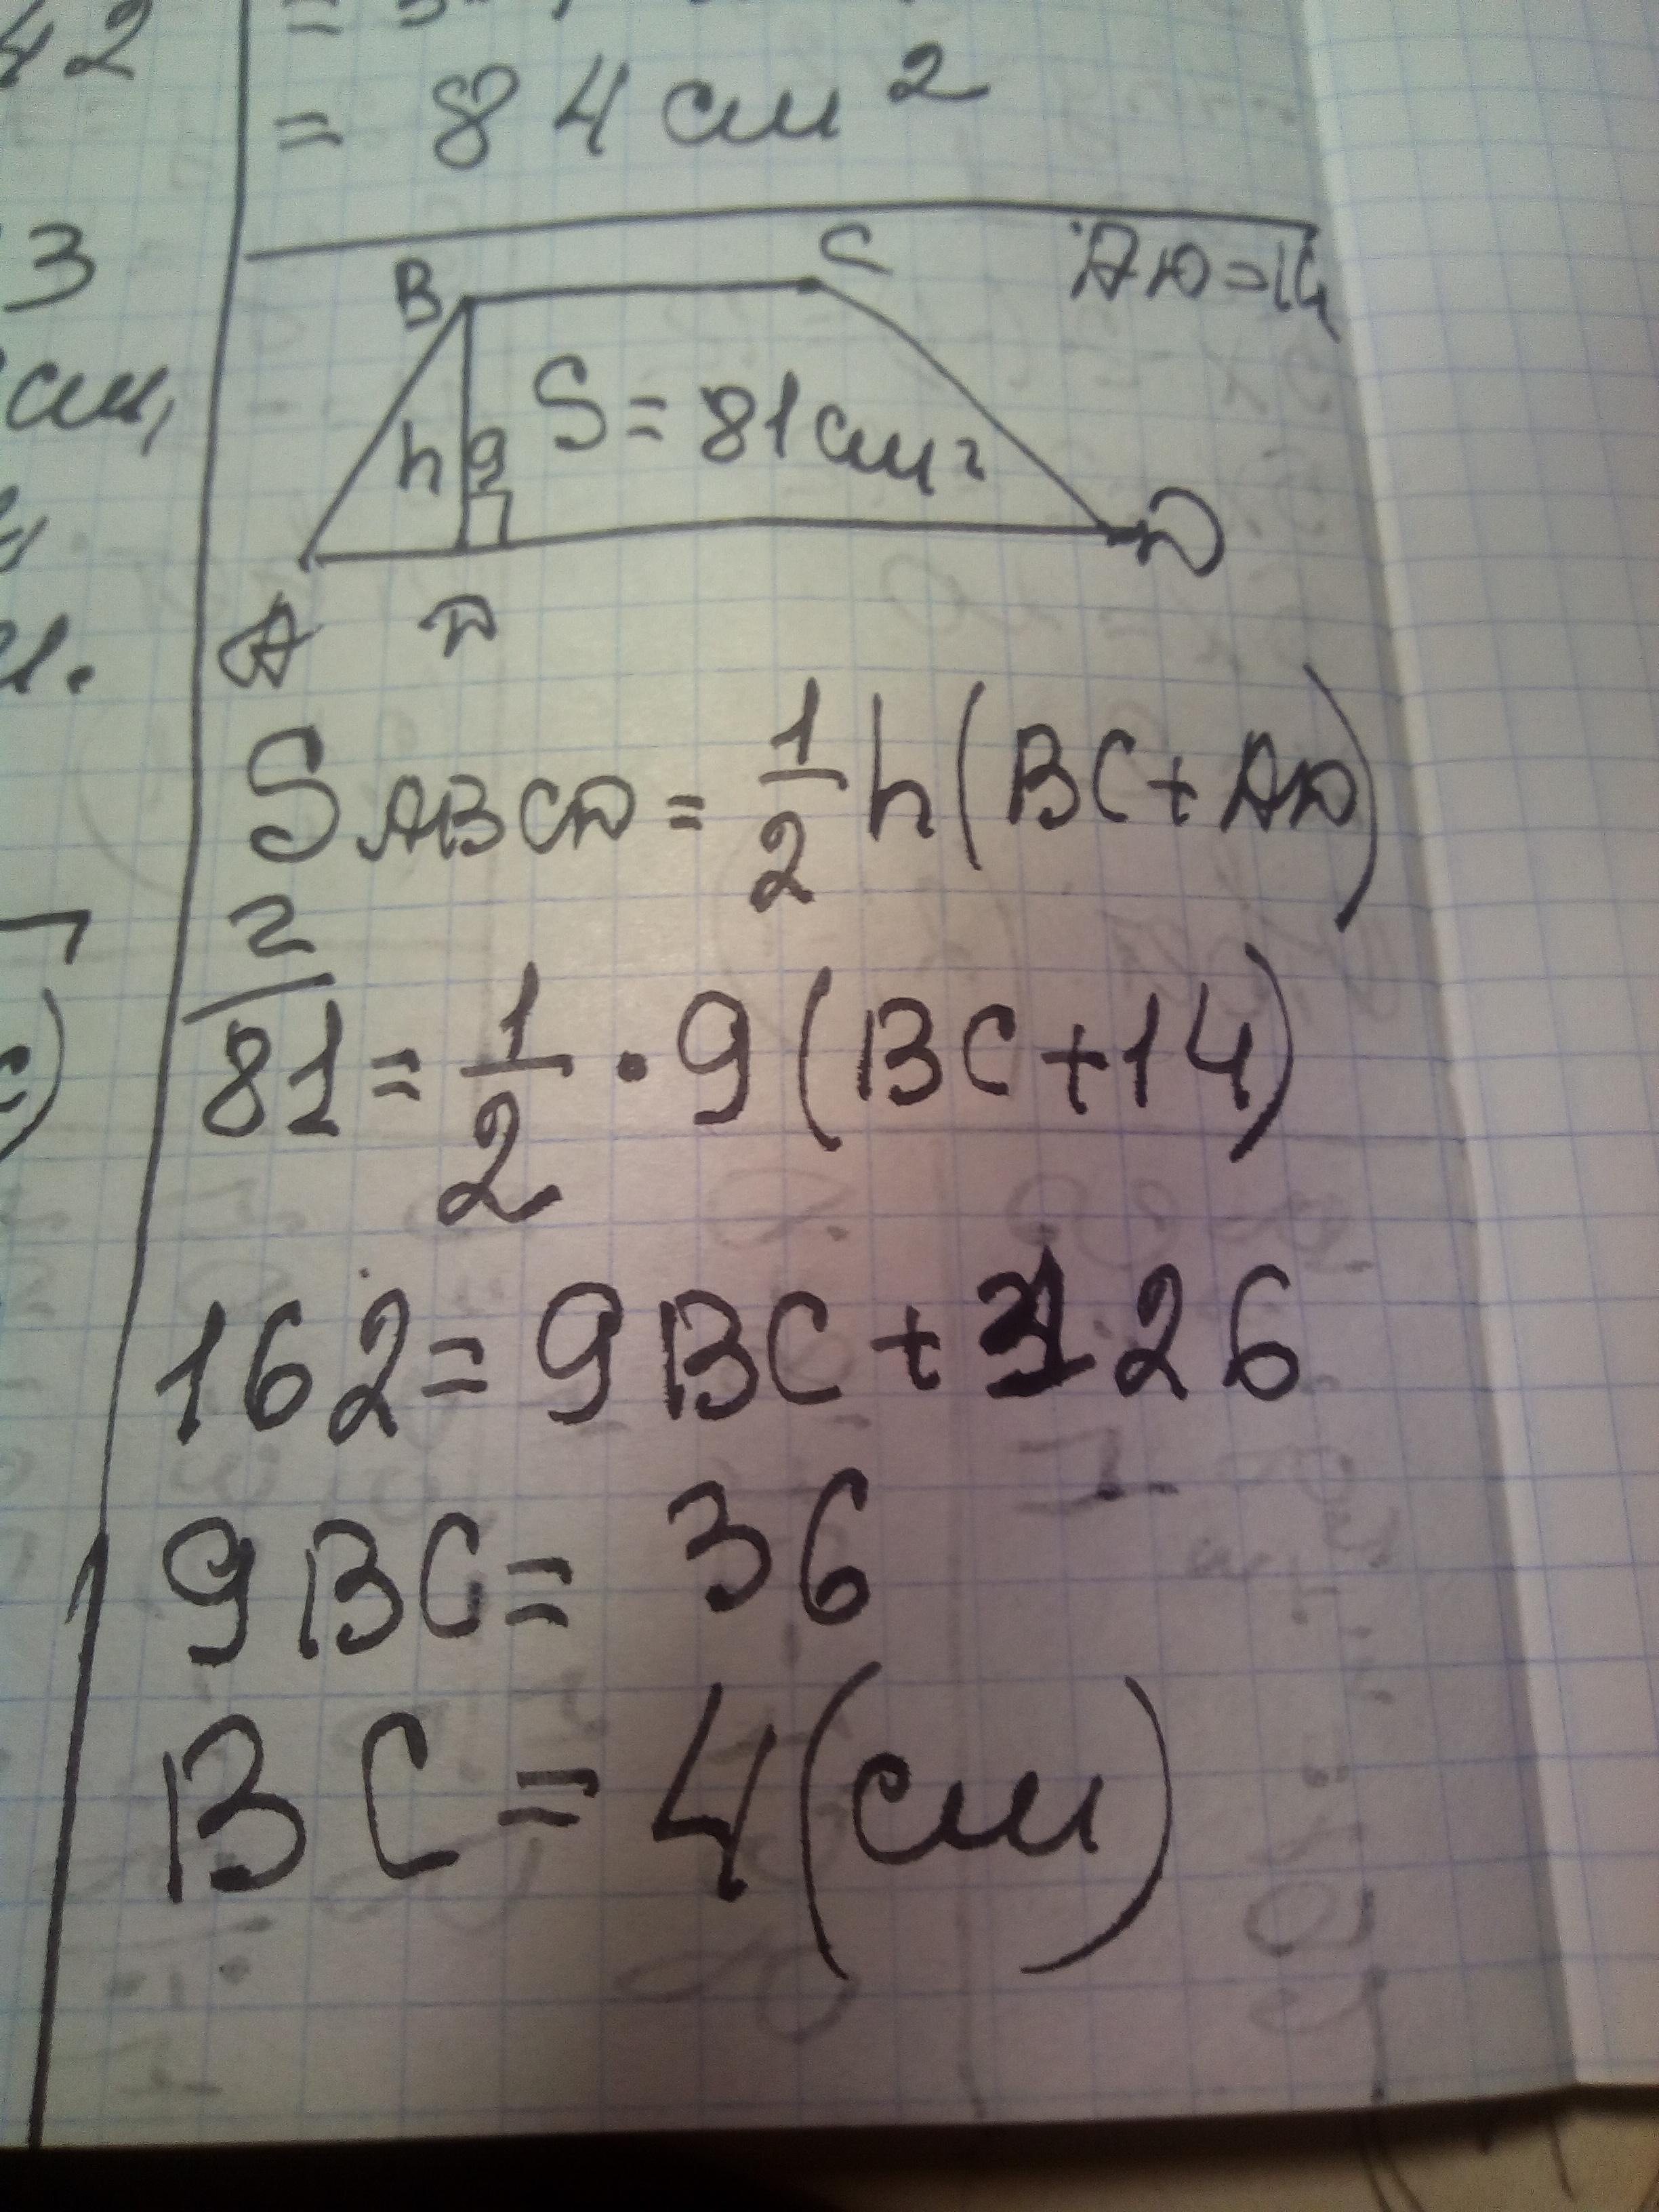 42
= 84 см²
3
см,
B C AD=14
h 9 S=81см²
A D
S ABCD = 1/2 h(BC+AD)
2
81 = 1/2 · 9(BC+14)
162=9BC+126
9BC=36
BC=4(см)